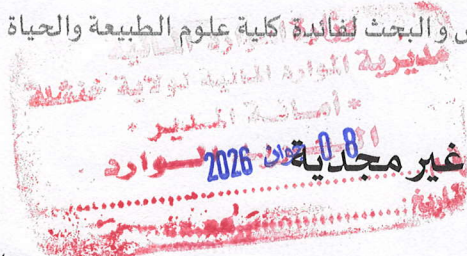 و البحث لفائدة كلية علوم الطبيعة والحياة
مديرية الموارد المائية لولاية خنشلة
* أمانة المدير *
الوارد
08 جوان 2026
غير مجدية